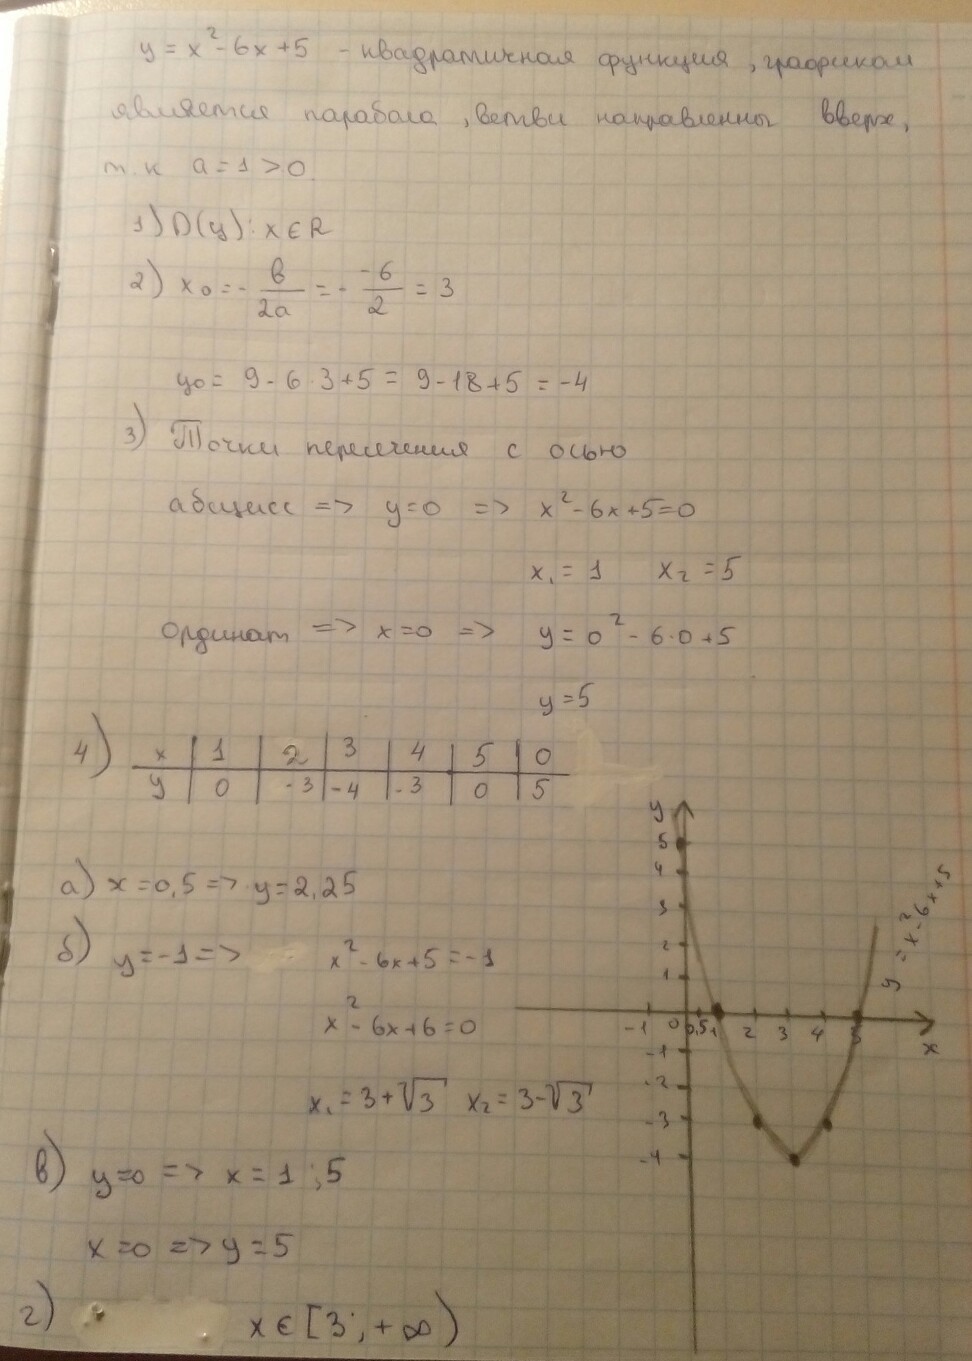 y = x² - 6x + 5 - квадратичная функция, графиком
является парабола, ветви направленны вверх,
т.к a = 1 > 0.
1) D(y): x ∈ R
2) x₀ = - в/2a = - -6/2 = 3
y₀ = 9 - 6·3 + 5 = 9 - 18 + 5 = -4
3) Точки пересечения с осью
абсцисс => y=0 => x² - 6x + 5 = 0
x₁ = 1 x₂ = 5
ординат => x=0 => y = 0² - 6·0 + 5
y = 5
4) x 1 2 3 4 5 0
y 0 -3 -4 -3 0 5
а) x = 0,5 => y = 2,25
б) y = -1 => x² - 6x + 5 = -1
x² - 6x + 6 = 0
x₁ = 3 + √3 x₂ = 3 - √3
в) y=0 => x = 1 ; 5
x = 0 => y = 5
г) x ∈ [3 ; + ∞)
y
5
4
3
2
1
-1 0 0,5 1 2 3 4 5 x
-1
-2
-3
-4
y = x² - 6x + 5